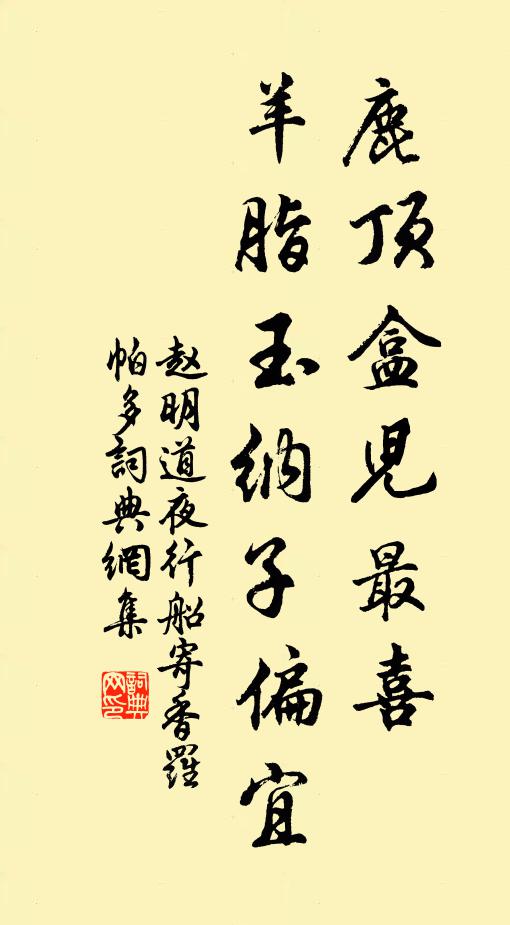 鹿顶盒兒最喜
羊脂玉纳子偏宜
赵明道夜行船寄香羅
帕多詞典網集
詞典
网印